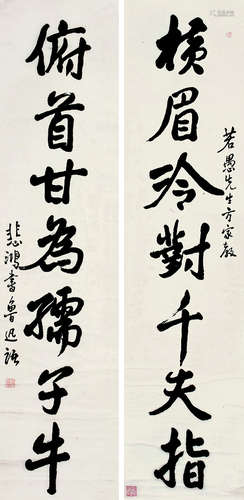 橫眉冷對千夫指
若愚先生方家教
俯首甘為孺子牛
悲鴻書魯迅語